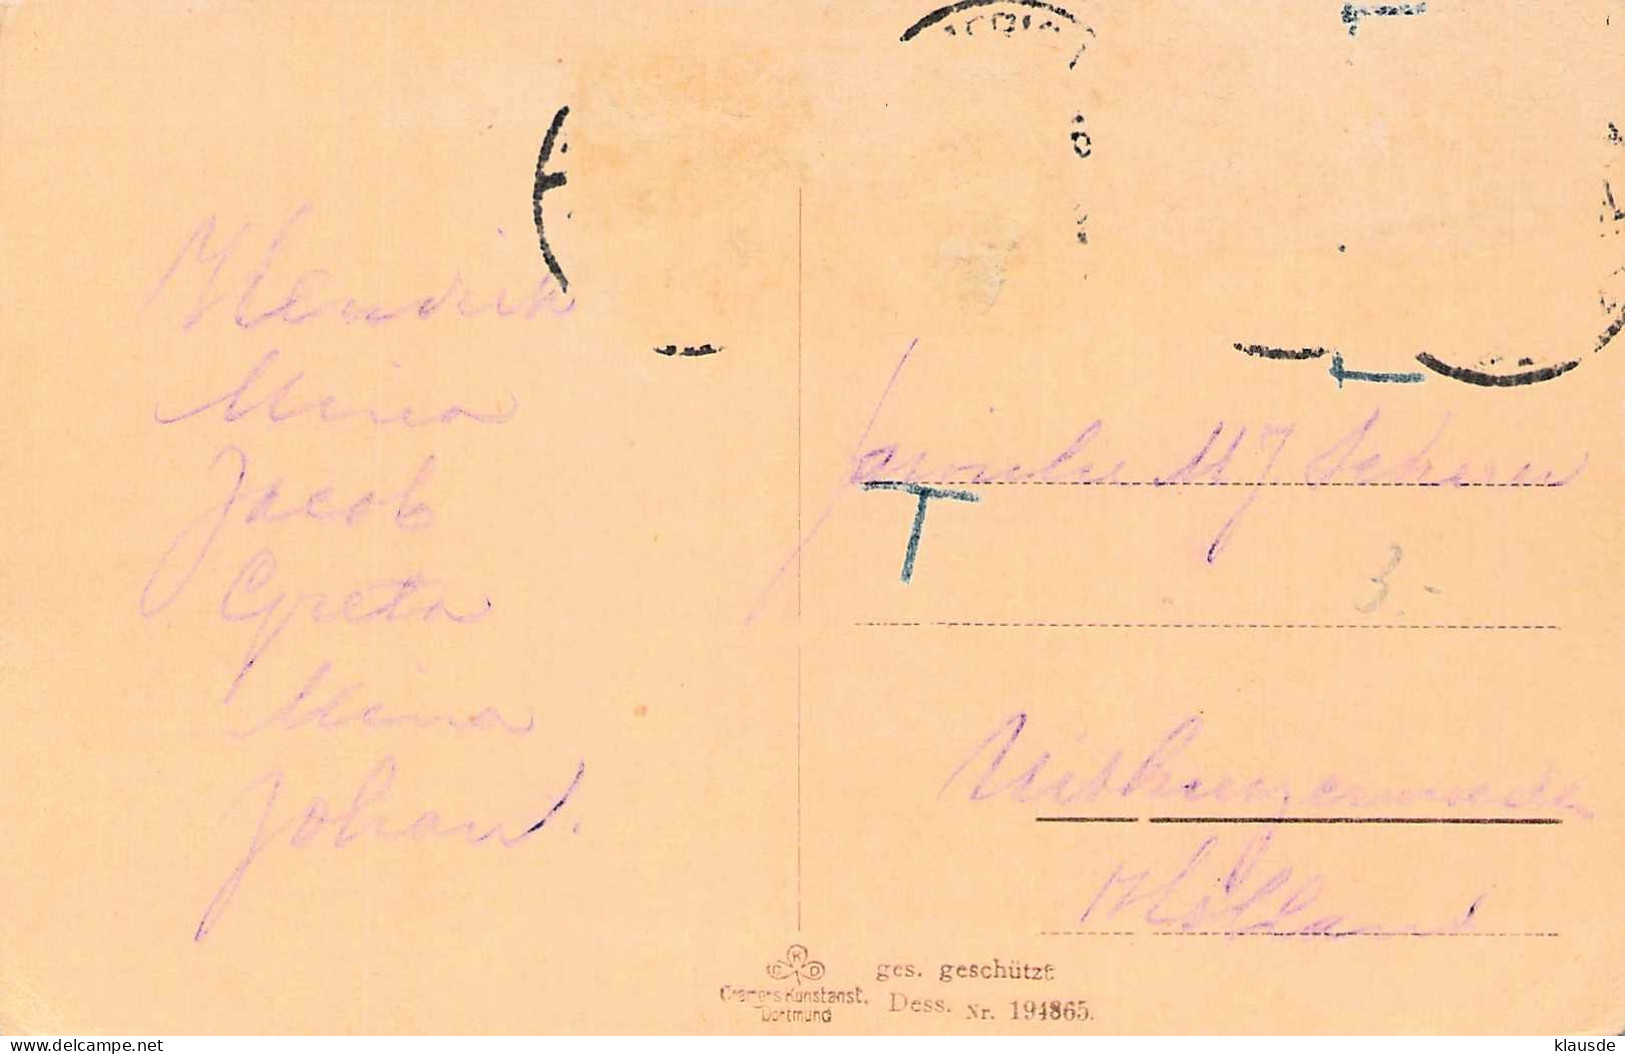 Hendrik
Mina
Jacob
Greta
Mina
Johan.
T
Familie M J
3.-
Holland
CKD
Cramers Kunstanst.
Dortmund
ges. geschützt
Dess. Nr. 194865.
delcampe.net
klausde